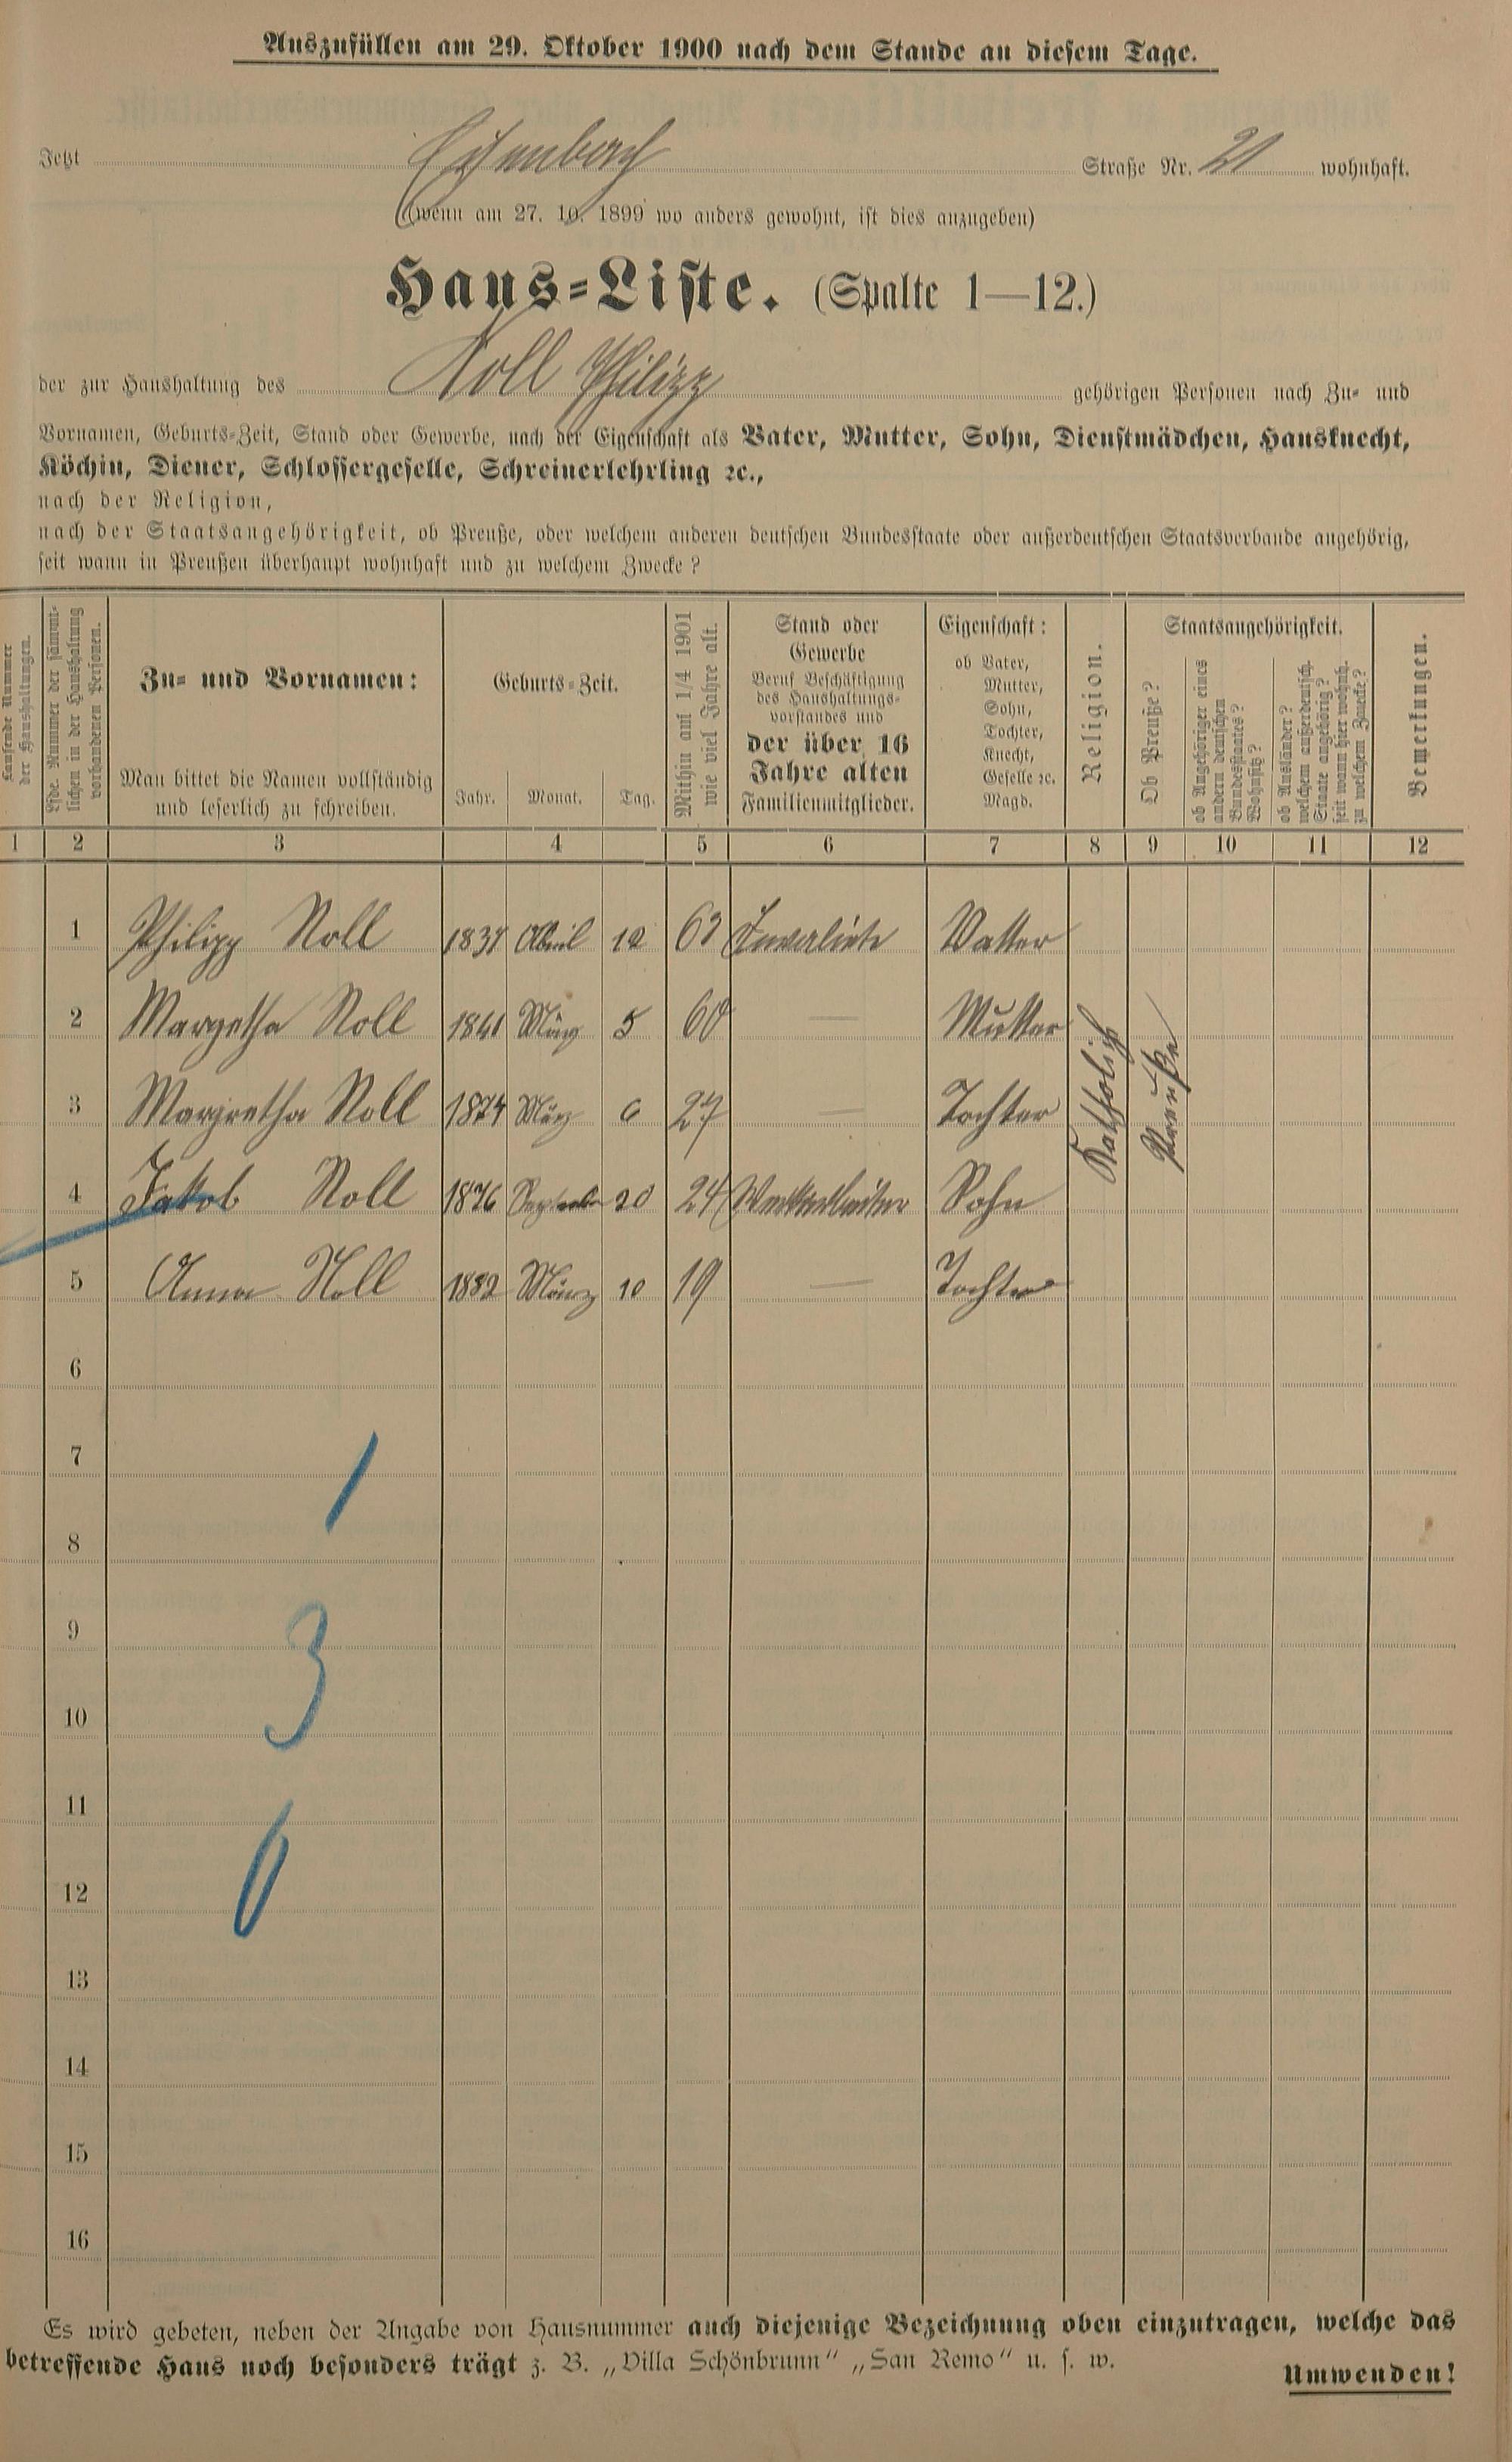 Auszufüllen am 29. Oktober 1900 nach dem Stande an diesem Tage.
Jetzt Eschenbach Straße Nr. 21 wohnhaft.
(wenn am 27. 10. 1899 wo anders gewohnt, ist dies anzugeben)
Haus-Liste. (Spalte 1—12.)
der zur Haushaltung des Noll Philipp gehörigen Personen nach Zu- und
Vornamen, Geburts-Zeit, Stand oder Gewerbe, nach der Eigenschaft als Vater, Mutter, Sohn, Dienstmädchen, Hausknecht,
Köchin, Diener, Schlossergeselle, Schreinerlehrling ꝛc.,
nach der Religion,
nach der Staatsangehörigkeit, ob Preuße, oder welchem anderen deutschen Bundesstaate oder außerdeutschen Staatsverbande angehörig,
seit wann in Preußen überhaupt wohnhaft und zu welchem Zwecke?
Laufende Nummer
der Haushaltungen.
Lfde. Nummer der sämmt-
lichen in der Haushaltung
vorhandenen Personen.
Zu- und Vornamen:
Man bittet die Namen vollständig
und leserlich zu schreiben.
Geburts-Zeit.
Jahr. Monat. Tag.
Mithin am 1/4 1901
wie viel Jahre alt.
Stand oder
Gewerbe
Beruf Beschäftigung
des Haushaltungs-
vorstandes und
der über 16
Jahre alten
Familienmitglieder.
Eigenschaft:
ob Vater,
Mutter,
Sohn,
Tochter,
Knecht,
Geselle ꝛc.
Magd.
Religion.
Staatsangehörigkeit.
Ob Preuße?
ob Angehöriger eines
andern deutschen
Bundesstaates?
Wohnsitz?
ob Ausländer?
welchem außerdeutsch.
Staate angehörig?
seit wann hier wohnh.
zu welchem Zwecke?
Bemerkungen.
1 2 3 4 5 6 7 8 9 10 11 12
1 Philipp Noll 1837 April 12 63 Invaliede Vatter
2 Margetha Noll 1841 März 5 60 — Mutter
3 Margretha Noll 1874 März 6 27 — Tochter
4 Jakob Noll 1876 September 20 24 Sohn
5 Anna Noll 1882 März 10 19 — Tochter
Katholisch
Preuße
6
7
1
8
9
3
10
11
0
12
13
14
15
16
Es wird gebeten, neben der Angabe von Hausnummer auch diejenige Bezeichnung oben einzutragen, welche das
betreffende Haus noch besonders trägt z. B. „Villa Schönbrunn" „San Remo" u. s. w.
Umwenden!